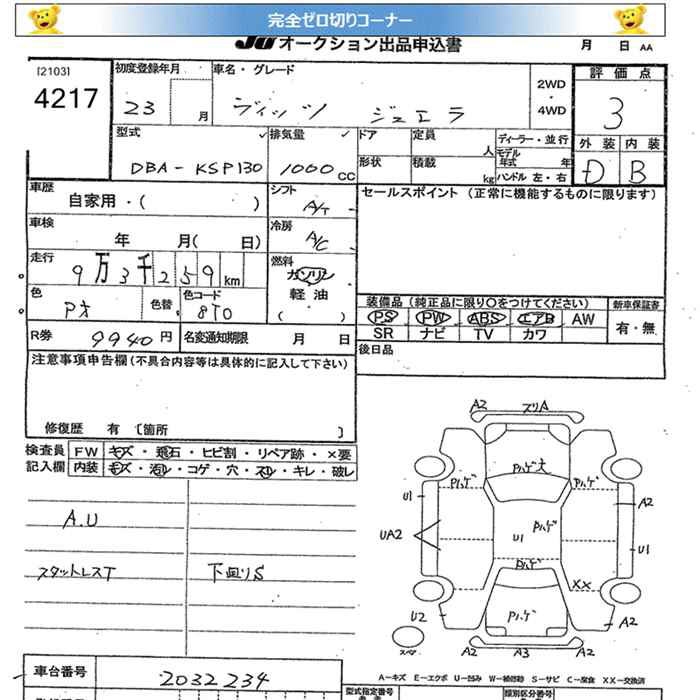 完全ゼロ切りコーナー
JU オークション出品申込書 月 日 AA
[2103]
4217
初度登録年月 車名・グレード 2WD ・ 4WD 評価点
23 月 ヴィッツ ジュエラ 3
型式 排気量 ドア 定員 人 ディーラー・並行 外装 内装
DBA-KSP130 1000cc 形状 積載 kg モデル年式 年 ハンドル 左・右 D B
車歴 自家用・( ) シフト A/T セールスポイント (正常に機能するものに限ります)
車検 年 月( 日) 冷房 A/C
走行 9万3千259km 燃料 ガソリン
軽油
( )
色 Pオ 色替 色コード 8T0
装備品 (純正品に限り○をつけてください) 新車保証書
PS PW ABS エアB AW 有・無
SR ナビ TV カワ
R券 9940円 名変通知期限 月 日
後日品
注意事項申告欄(不具合内容等は具体的に記入して下さい)
修復歴 有 〔箇所 〕
検査員 FW キズ・飛石・ヒビ割・リペア跡・×要
記入欄 内装 キズ・汚レ・コゲ・穴・スレ・キレ・破レ
A.U
スタットレスT 下回りS
A2 スリA A2
Pハゲ大
Pハゲ Pハゲ
U1 A2
UA2 U1 Pハゲ U1
Pハゲ
XX
U2 Pハゲ A2
スペア A2 A3 A2
車台番号 2032234
A-キズ E-エクボ U-凹み W-補修跡 S-サビ C-腐食 XX-交換済
型式指定番号 類別区分番号